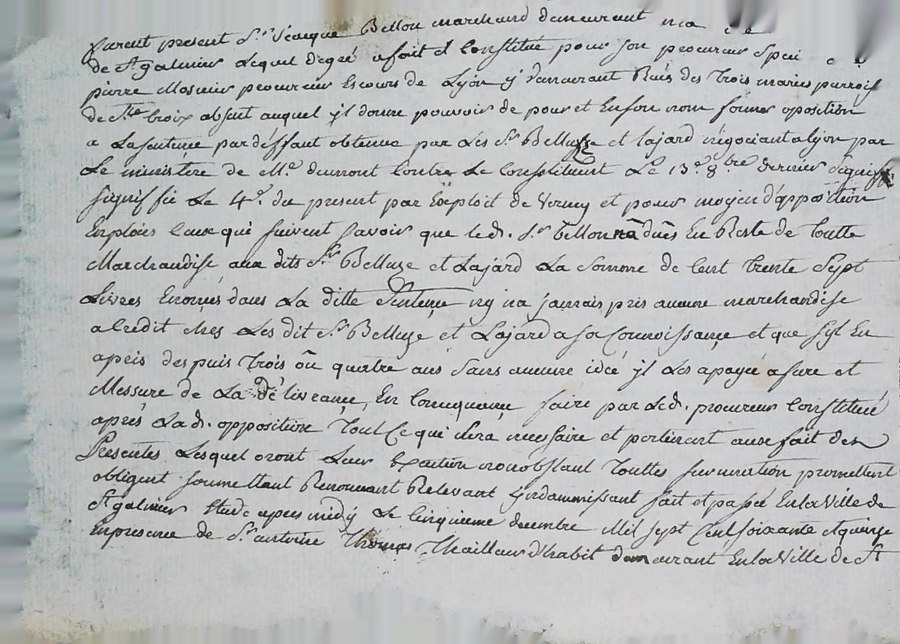 furent présent Sr Jacque Bellon marchand demeurant
de St galmier Lequel degré a fait et Constitué pour son procureur Speci
pierre Mosnier procureur Escours de Lyon y demeurant Rue des trois maries parroisse
de Ste Croix absent auquel jl donne pouvoir de pour et En son nom former oposition
a La sentence par déffaut obtenue par Les Srs Belluze et Lajard négociant a lyon par
Le ministère de Me dumont Contre Le Constituent Le 13e 8bre dernier
signiffié Le 4e du present par Exploit de Verney et pour moyen d'apposition
Employés Ceux qui suivent savoir que led. Sr bellon na dués En Reste de toutte
Marchandise aux dits Srs Belluze et Lajard La Somme de Cent trente Sept
Livres Enoncés dans La ditte Sentence ny na jamais pris aucune marchandise
a Credit chés Les dit Srs Belluze et Lajard a sa Connoissance et que syl En
a pris despuis trois ou quatre ans sans aucune idée jl Les a payé a fure et
Messure de La délivrance, En Consequence faire par Led. procureur Constitué
après Lad. opposition tout Ce qui sera necessaire et pertinent aux fait des
Presentes Lesquel oront Leur Exécution nonobstant touttes surannation promettent
obligent soumettant Renoncant Relevant y jndamnissant fait et passé En la Ville de
St galmier Etude apres midy Le Cinquieme decembre Mil sept Cent soixante et quinze
En presence de Sr antoine Thomas Thailleur d'habit demeurant En la Ville de St